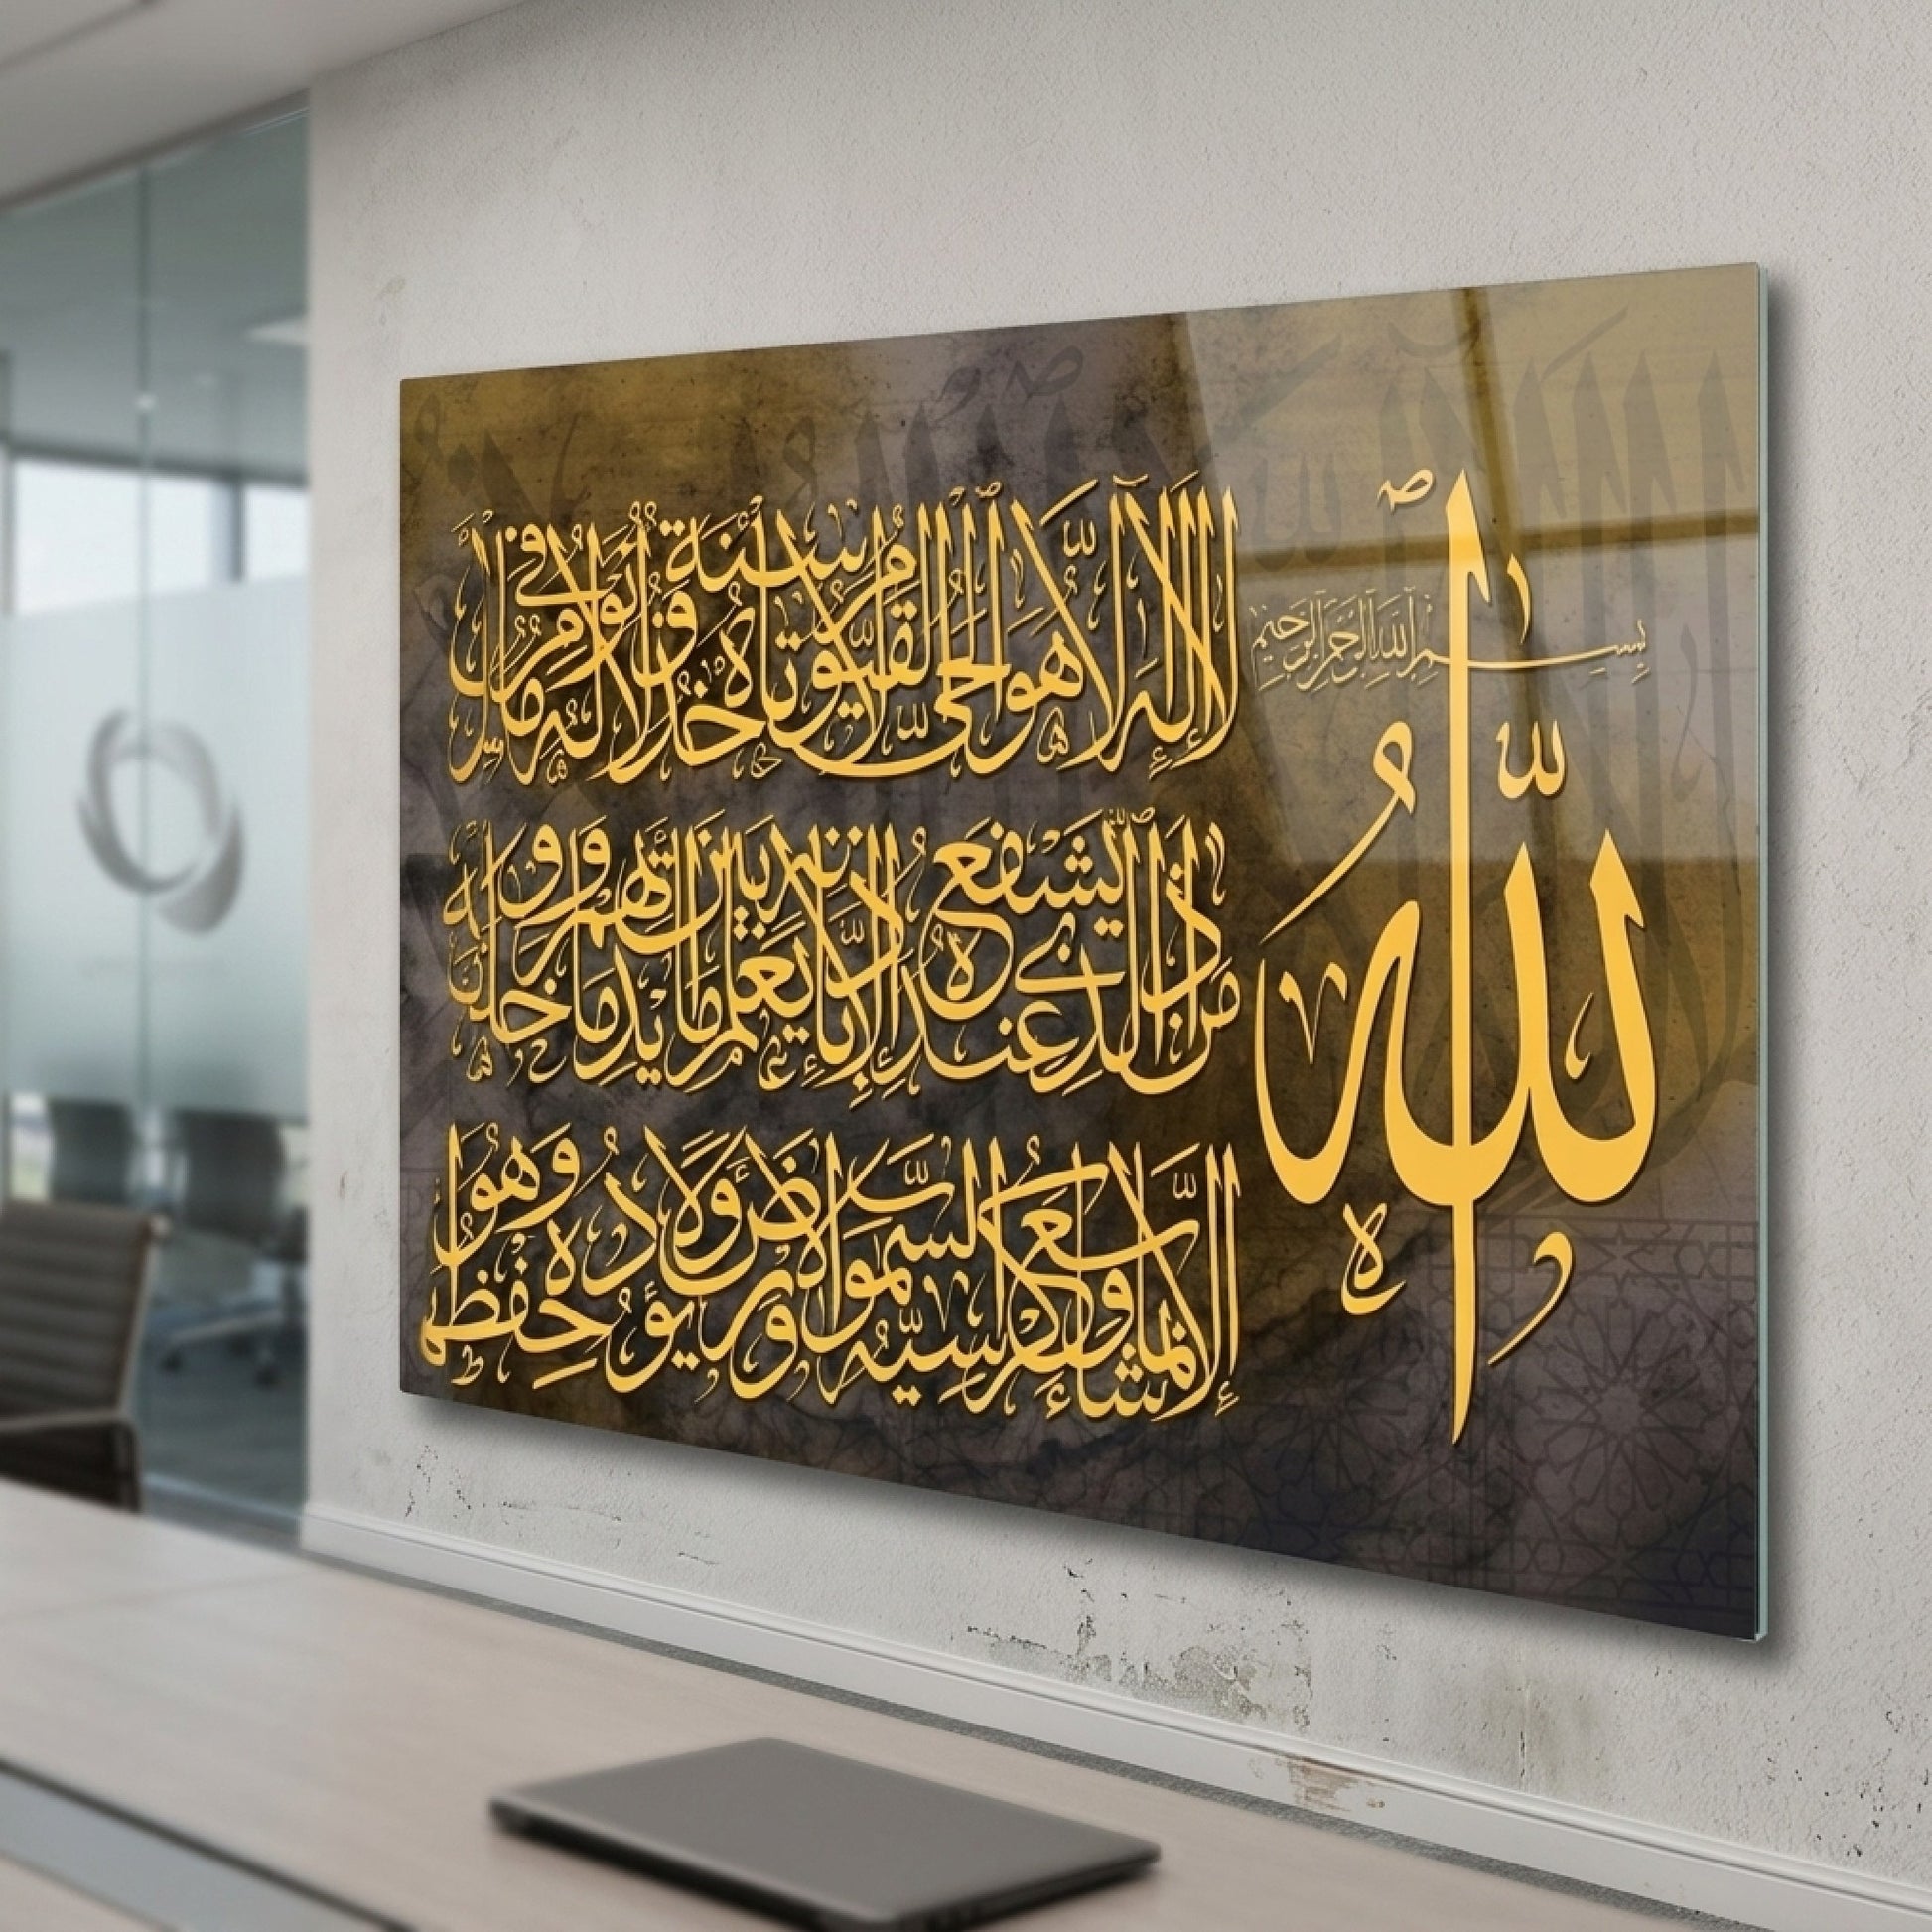 بسم الله الرحمن الرحيم
الله
لا إله إلا هو الحي القيوم لا تأخذه سنة ولا نوم له ما في
من ذا الذي يشفع عنده إلا بإذنه يعلم ما بين أيديهم وما
إلا بما شاء وسع كرسيه السموات والأرض ولا يؤده حفظهما وهو